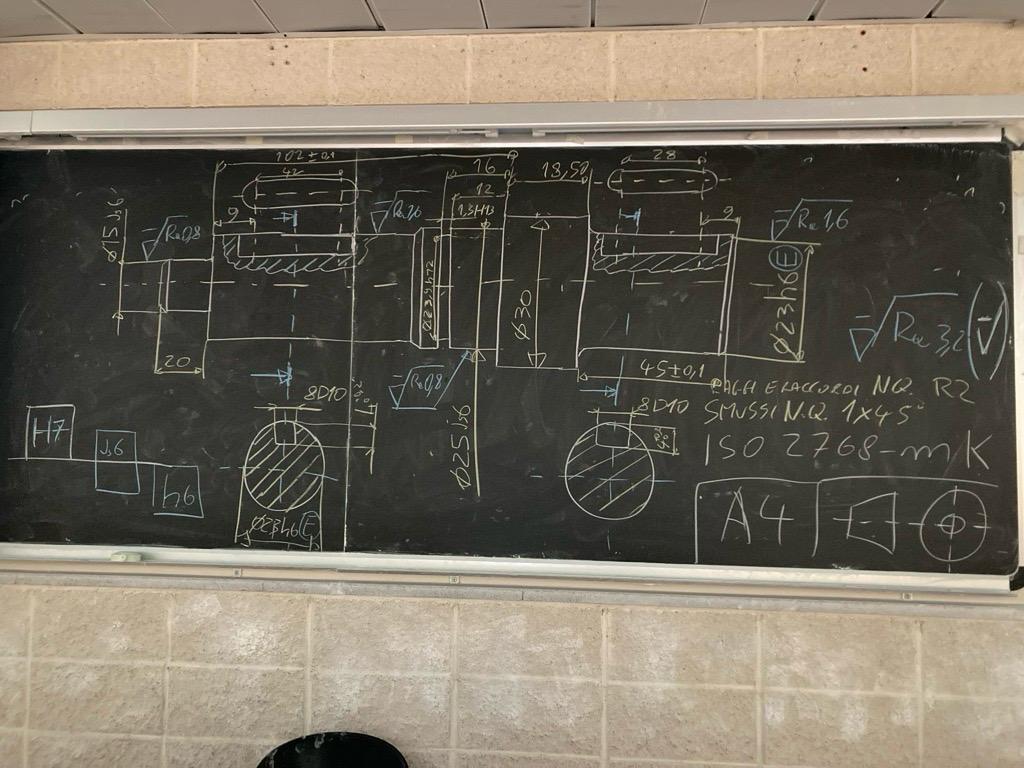 102±0,1
42
9
Ø15js6
√Ra0,8
20
√Ra1,6
16
12
1,3H13
18,5
Ø23,9h12
Ø30
28
9
√Ra1,6
Ø23h6 Ⓔ
√Ra3,2 (√)
45±0,1
√Ra0,8
Ø25js6
8D10
8D10
Ø23h6 Ⓔ
RAGGI E RACCORDI N.Q. R2
SMUSSI N.Q. 1x45°
ISO 2768-mK
H7
Js6
h6
A4